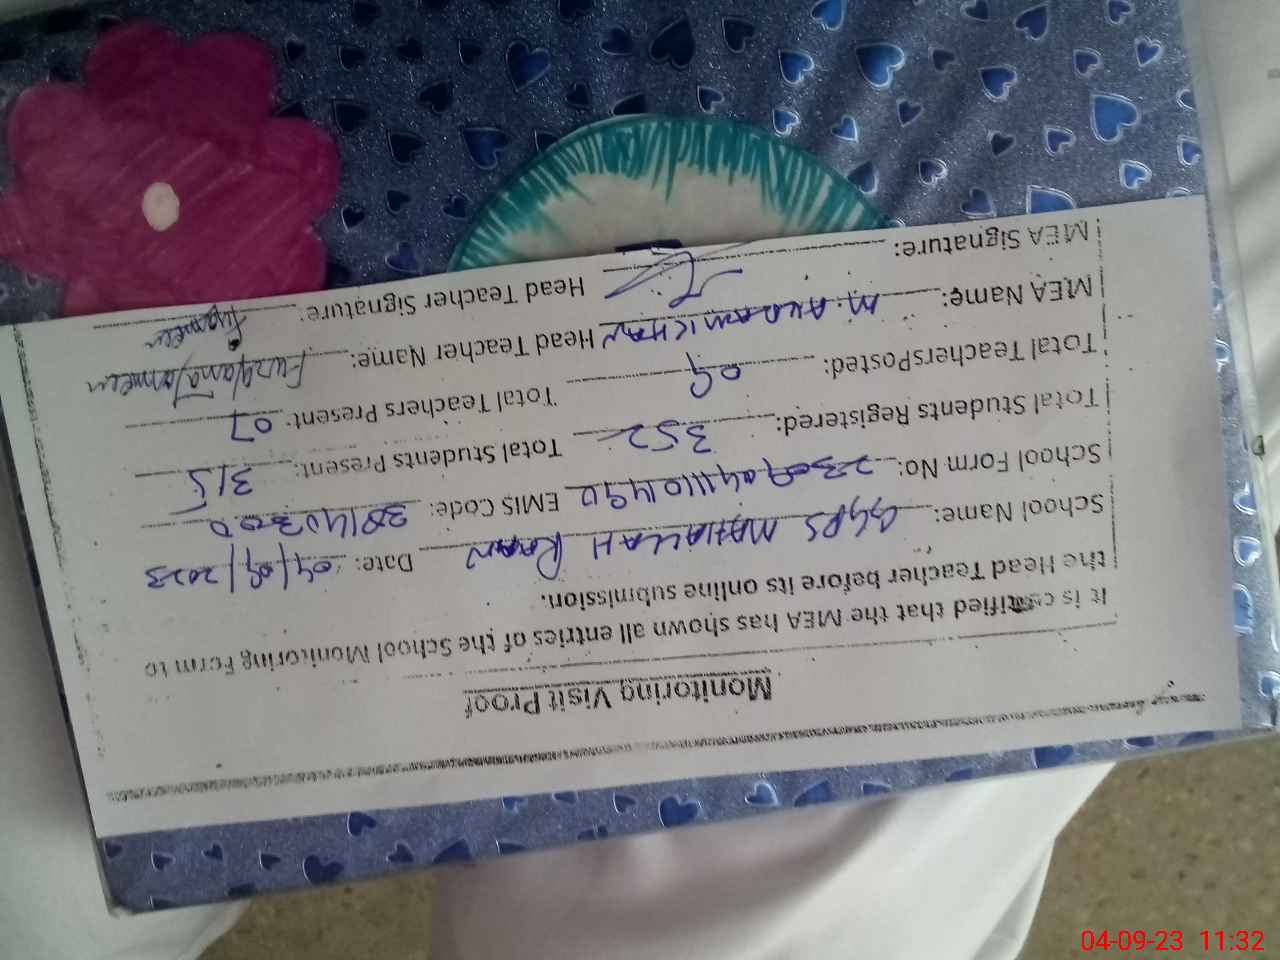 Monitoring Visit Proof
It is certified that the MEA has shown all entries of the School Monitoring Form to
the Head Teacher before its online submission.
School Name: GGPS MAHALLAH Date: 04/09/2023
School Form No: EMIS Code: 38140300
Total Students Registered: 352 Total Students Present: 315
Total TeachersPosted: 09 Total Teachers Present: 07
MEA Name: Head Teacher Name:
MEA Signature: Head Teacher Signature:
04-09-23 11:32